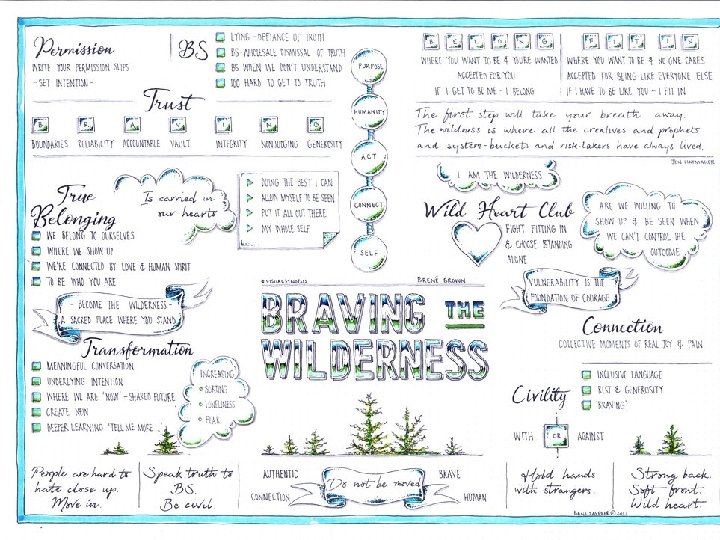 Permission
WRITE YOUR PERMISSION SLIPS
- SET INTENTION -
BS
LYING - DEFIANCE OF TRUTH
BS - WHOLESALE DISMISSAL OF TRUTH
BS WHEN WE DON'T UNDERSTAND
TOO HARD TO GET TO TRUTH
PURPOSE
HUMANITY
ACT
CONNECT
SELF
BELONG
WHERE YOU WANT TO BE & YOU'RE WANTED
ACCEPTED FOR YOU
IF I GET TO BE ME - I BELONG
FIT IN
WHERE YOU WANT TO BE & NO ONE CARES
ACCEPTED FOR BEING LIKE EVERYONE ELSE
IF I HAVE TO BE LIKE YOU - I FIT IN
Trust
B R A V I N G
BOUNDARIES RELIABILITY ACCOUNTABLE VAULT INTEGRITY NONJUDGING GENEROSITY
The first step will take your breath away.
The wilderness is where all the creatives and prophets
and system-buckers and risk-takers have always lived.
JEN HATMAKER
True
Belonging
Is carried in
our hearts
DOING THE BEST I CAN
ALLOW MYSELF TO BE SEEN
PUT IT ALL OUT THERE
MY WHOLE SELF
WE BELONG TO OURSELVES
WHERE WE SHOW UP
WE'RE CONNECTED BY LOVE & HUMAN SPIRIT
TO BE WHO YOU ARE
- BECOME THE WILDERNESS -
A SACRED PLACE WHERE YOU STAND
I AM THE WILDERNESS
Wild Heart Club
FIGHT FITTING IN
& CHOOSE STANDING
ALONE
ARE WE WILLING TO
SHOW UP & BE SEEN WHEN
WE CAN'T CONTROL THE
OUTCOME
VULNERABILITY IS THE
FOUNDATION OF COURAGE
BRENE BROWN
BRAVING THE
WILDERNESS
Transformation
MEANINGFUL CONVERSATION
UNDERLYING INTENTION
WHERE WE ARE "NOW" - SHARED FUTURE
CREATE NEW
DEEPER LEARNING "TELL ME MORE"
INCREASING
SORTING
LONELINESS
FEAR
Connection
COLLECTIVE MOMENTS OF REAL JOY & PAIN
Civility
INCLUSIVE LANGUAGE
REST & GENEROSITY
"BRAVING"
WITH OR AGAINST
People are hard to
hate close up.
Move in.
Speak truth to
BS.
Be civil
AUTHENTIC
CONNECTION
Do not be moved
BRAVE
HUMAN
Hold hands
with strangers.
Strong back
Soft front.
Wild heart.